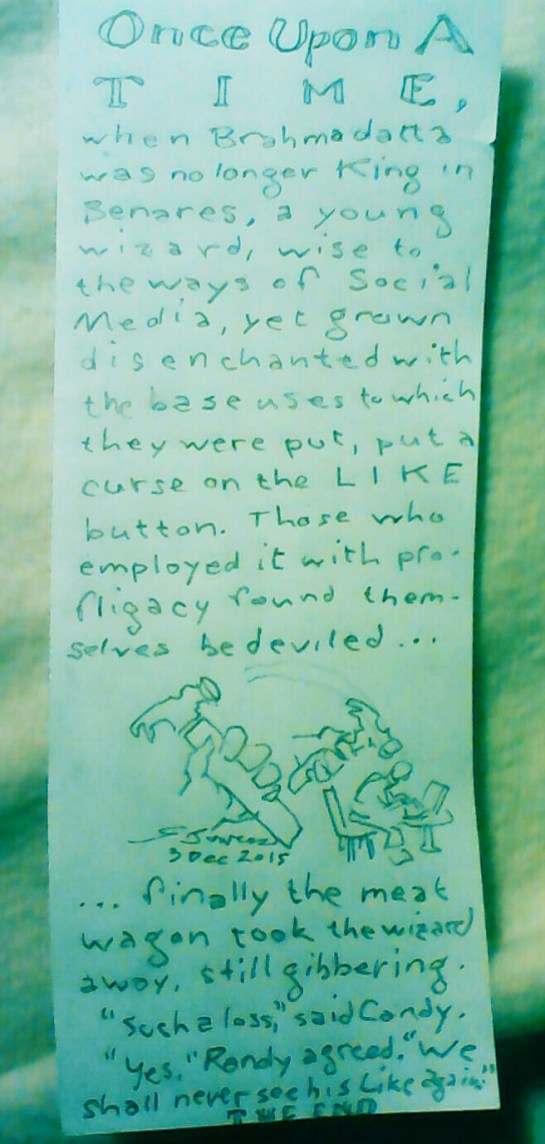 Once Upon A
TIME,
when Brahmadatta
was no longer King in
Benares, a young
wizard, wise to
the ways of Social
Media, yet grown
disenchanted with
the base uses to which
they were put, put a
curse on the LIKE
button. Those who
employed it with pro-
fligacy found them-
selves bedeviled...
3 Dec 2015
... finally the meat
wagon took the wizard
away, still gibbering.
"Such a loss," said Candy.
"Yes." Randy agreed. "We
shall never see his Like again."
THE END